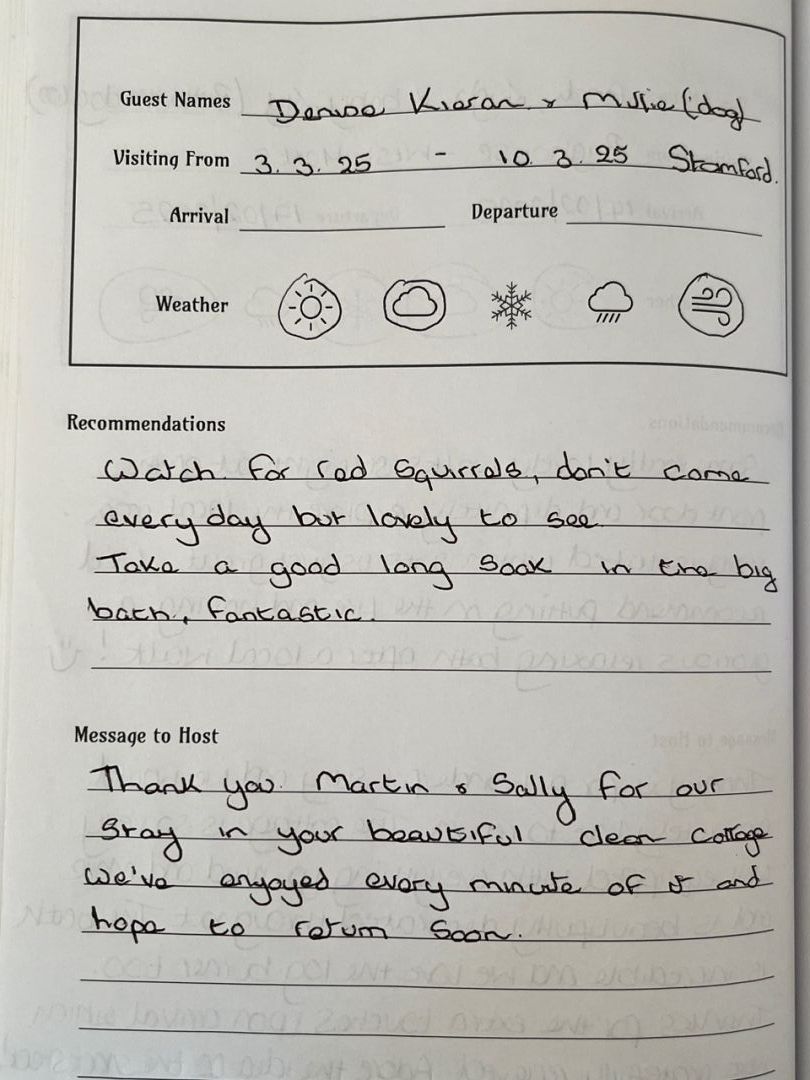 Guest Names Denise Kieran & Millie (dog)
Visiting From 3.3.25 - 10.3.25 Stamford.
Arrival Departure
Weather
Recommendations
Watch for red squirrels, don't come
every day but lovely to see
Take a good long soak in the big
bath, fantastic.
Message to Host
Thank you Martin & Sally for our
stay in your beautiful clean cottage
We've enjoyed every minute of it and
hope to return soon.